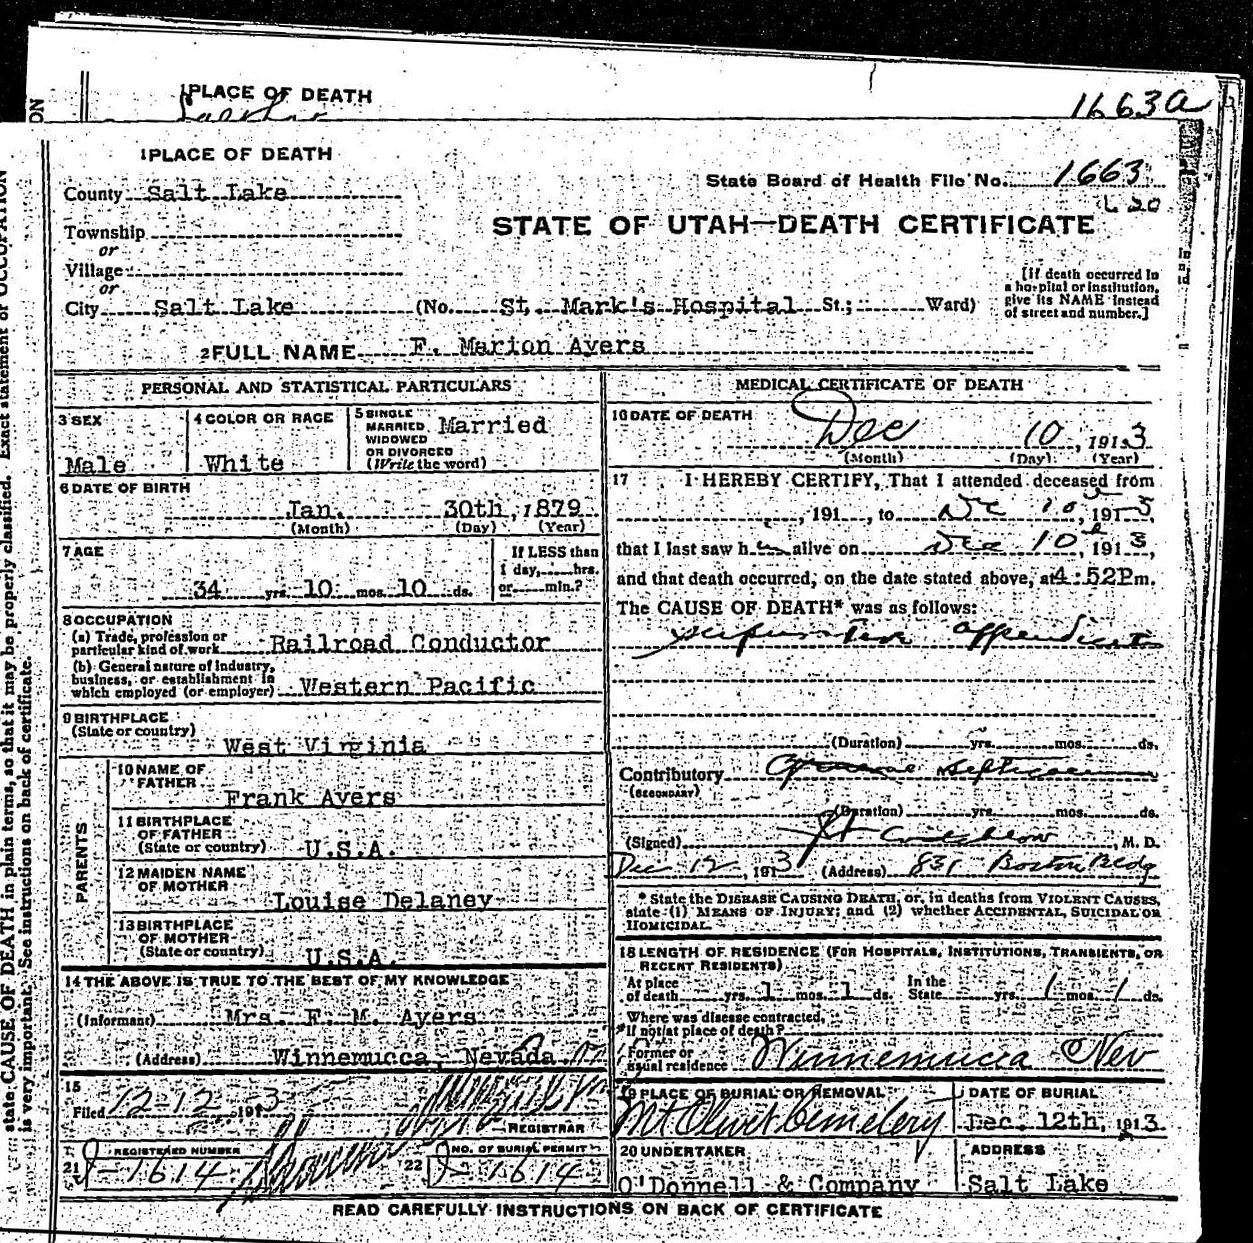 1PLACE OF DEATH
1663a
1PLACE OF DEATH
County Salt Lake
State Board of Health File No. 1663
Township
STATE OF UTAH—DEATH CERTIFICATE
or
Village
or
[If death occurred in a hospital or institution, give its NAME instead of street and number.]
City Salt Lake (No. St. Mark's Hospital St.; Ward)
2 FULL NAME F. Marion Ayers
PERSONAL AND STATISTICAL PARTICULARS
3 SEX
Male
4 COLOR OR RACE
White
5 SINGLE
MARRIED
WIDOWED
OR DIVORCED
(Write the word)
Married
6 DATE OF BIRTH
Jan. 30th, 1879
(Month) (Day) (Year)
7 AGE
34 yrs. 10 mos. 10 ds.
If LESS than
1 day, hrs.
or min.?
8 OCCUPATION
(a) Trade, profession or
particular kind of work Railroad Conductor
(b) General nature of industry,
business, or establishment in
which employed (or employer) Western Pacific
9 BIRTHPLACE
(State or country)
West Virginia
PARENTS
10 NAME OF
FATHER
Frank Ayers
11 BIRTHPLACE
OF FATHER
(State or country) U.S.A.
12 MAIDEN NAME
OF MOTHER
Louise Delaney
13 BIRTHPLACE
OF MOTHER
(State or country) U.S.A.
14 THE ABOVE IS TRUE TO THE BEST OF MY KNOWLEDGE
(Informant) Mrs. F. M. Ayers
(Address) Winnemucca, Nevada
15
Filed 12-12 1913
REGISTRAR
REGISTERED NUMBER
21 J-1614
22 NO. OF BURIAL PERMIT
J-1614
MEDICAL CERTIFICATE OF DEATH
16 DATE OF DEATH
Dec 10, 1913
(Month) (Day) (Year)
17 I HEREBY CERTIFY, That I attended deceased from
, 191 , to Dec 10, 1913,
that I last saw him alive on Dec 10, 1913,
and that death occurred, on the date stated above, at 4:52P m.
The CAUSE OF DEATH* was as follows:
appendicitis
(Duration) yrs. mos. ds.
Contributory septicaemia
(SECONDARY)
(Duration) yrs. mos. ds.
(Signed) , M. D.
Dec 12, 1913 (Address) 831 Boston Bldg
* State the DISEASE CAUSING DEATH, or, in deaths from VIOLENT CAUSES,
state (1) MEANS OF INJURY; and (2) whether ACCIDENTAL, SUICIDAL OR
HOMICIDAL.
18 LENGTH OF RESIDENCE (FOR HOSPITALS, INSTITUTIONS, TRANSIENTS, OR
RECENT RESIDENTS)
At place
of death yrs. 1 mos. 1 ds. In the
State yrs. 1 mos. 1 ds.
Where was disease contracted,
if not at place of death?
Former or
usual residence Winnemucca Nev
19 PLACE OF BURIAL OR REMOVAL
Mt Olivet Cemetery
DATE OF BURIAL
Dec. 12th, 1913
20 UNDERTAKER
O'Donnell & Company
ADDRESS
Salt Lake
READ CAREFULLY INSTRUCTIONS ON BACK OF CERTIFICATE
state CAUSE OF DEATH in plain terms, so that it may be properly classified. Exact statement of OCCUPATION
is very important. See instructions on back of certificate.